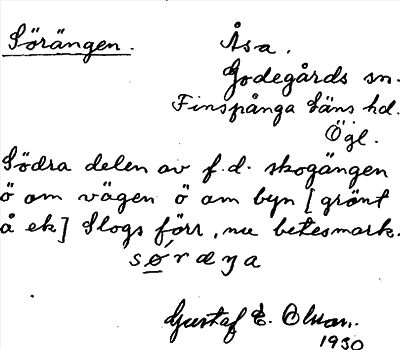 Sörängen. Åsa.
Godegårds sn.
Finspånga läns hd.
Ögl.
Södra delen av f.d. skogängen
ö om vägen ö om byn [grönt
å ek] Slogs förr, nu betesmark.
Gustaf E. Olson.
1930